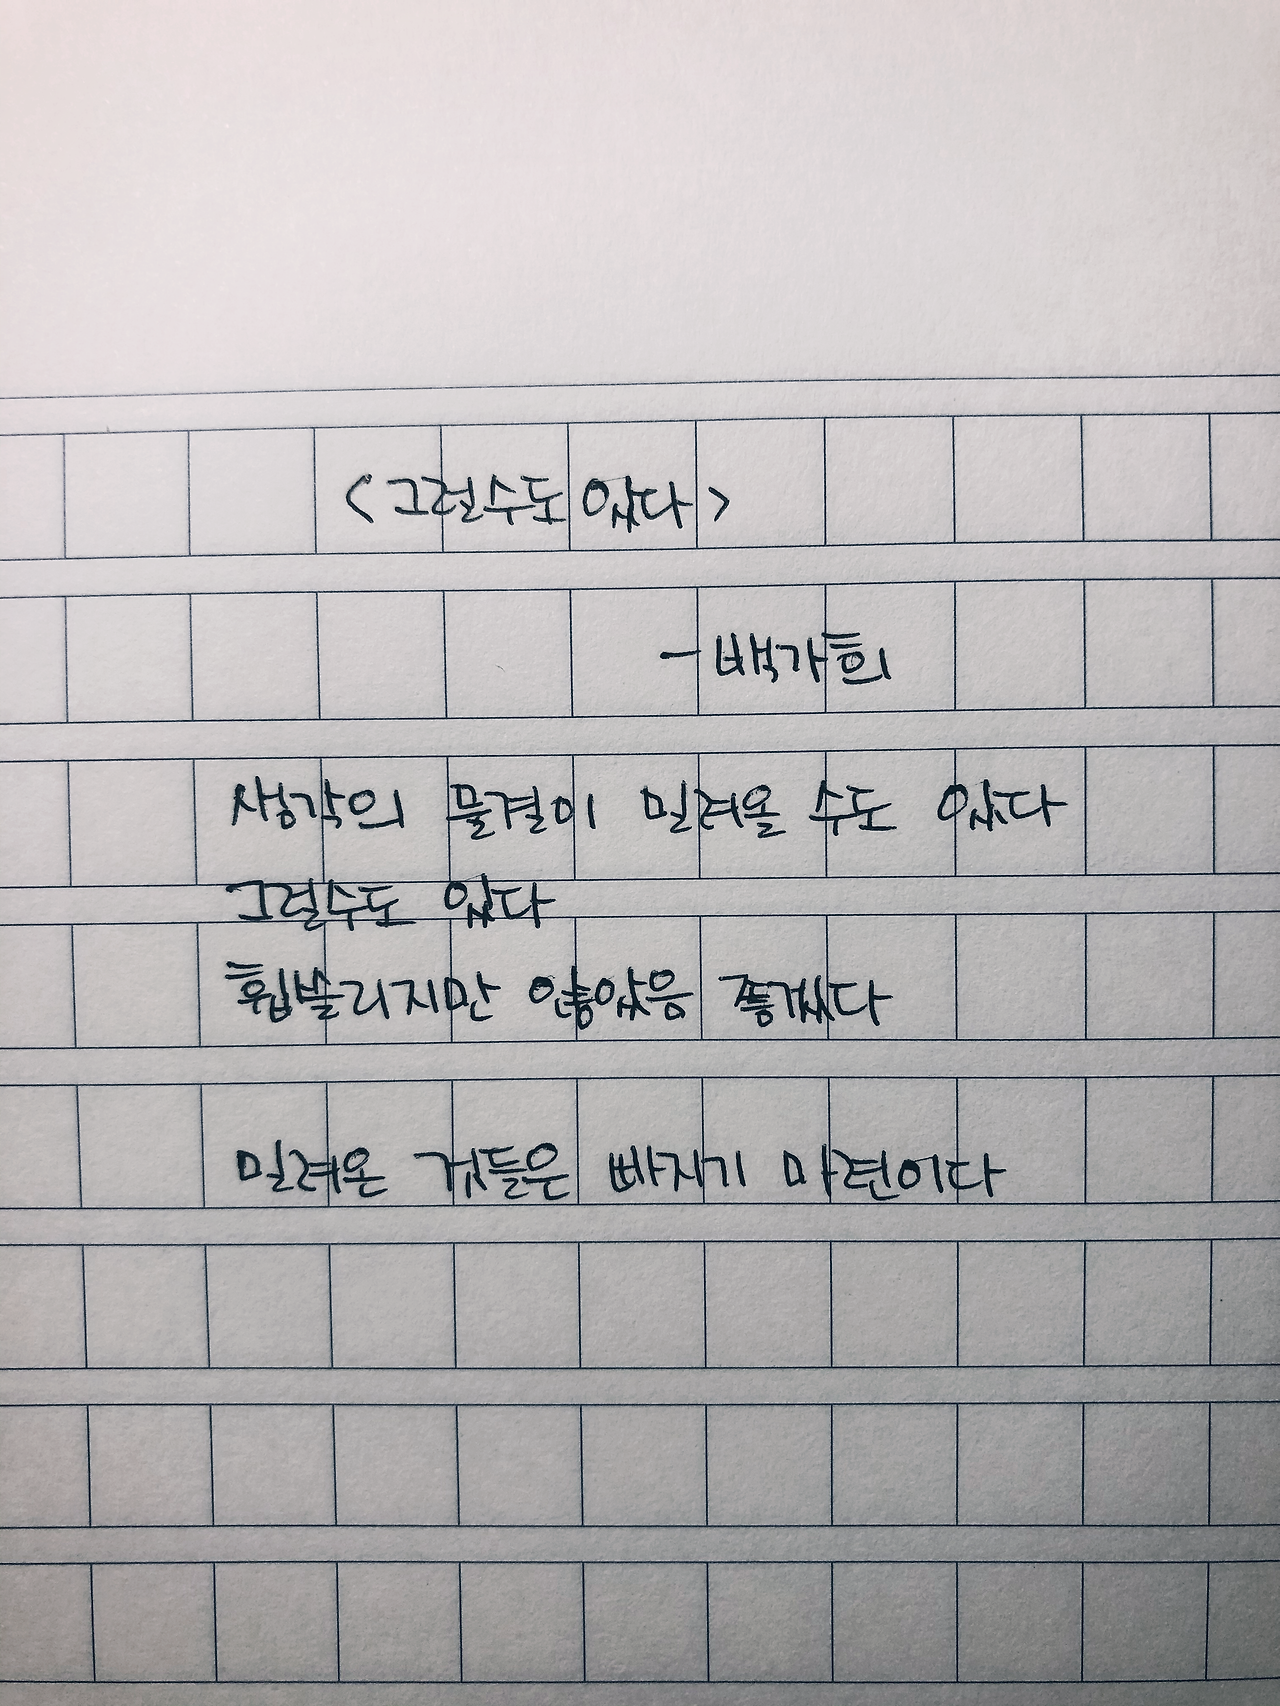 <그럴수도 있다>
- 백가희
생각의 물결이 밀려올 수도 있다
그럴수도 있다
휩쓸리지만 않았음 좋겠다
밀려온 것들은 빠지기 마련이다